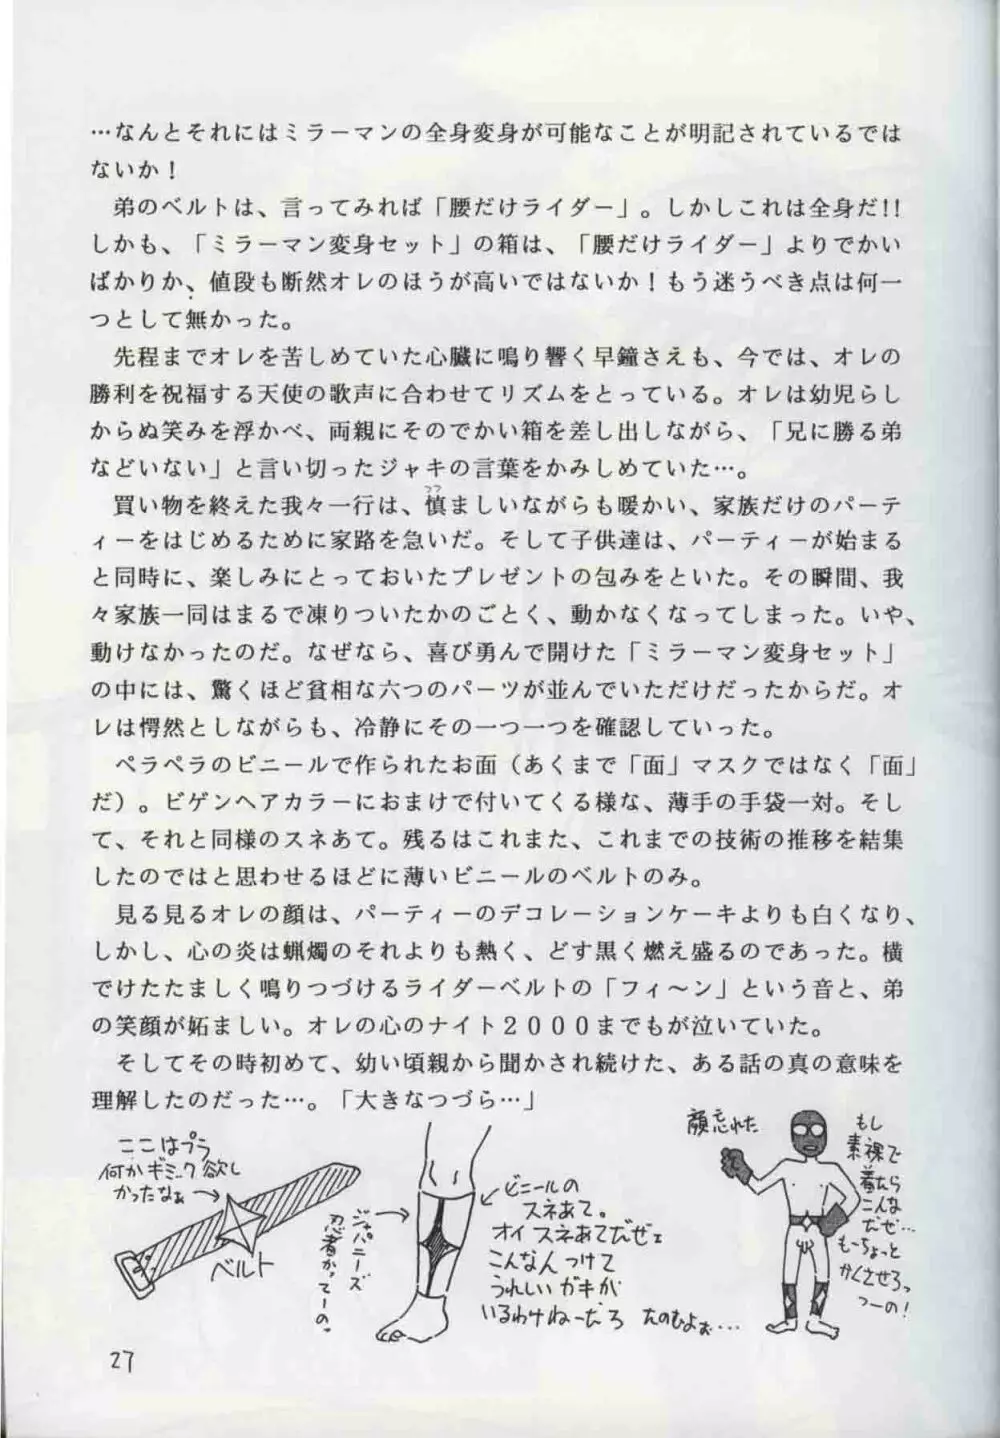 …なんとそれにはミラーマンの全身変身が可能なことが明記されているでは
ないか！
弟のベルトは、言ってみれば「腰だけライダー」。しかしこれは全身だ!!
しかも、「ミラーマン変身セット」の箱は、「腰だけライダー」よりでかい
ばかりか、値段も断然オレのほうが高いではないか！もう迷うべき点は何一
つとして無かった。
先程までオレを苦しめていた心臓に鳴り響く早鐘さえも、今では、オレの
勝利を祝福する天使の歌声に合わせてリズムをとっている。オレは幼児らし
からぬ笑みを浮かべ、両親にそのでかい箱を差し出しながら、「兄に勝る弟
などいない」と言い切ったジャキの言葉をかみしめていた…。
つつ
買い物を終えた我々一行は、慎ましいながらも暖かい、家族だけのパーテ
ィーをはじめるために家路を急いだ。そして子供達は、パーティーが始まる
と同時に、楽しみにとっておいたプレゼントの包みをといた。その瞬間、我
々家族一同はまるで凍りついたかのごとく、動かなくなってしまった。いや、
動けなかったのだ。なぜなら、喜び勇んで開けた「ミラーマン変身セット」
の中には、驚くほど貧相な六つのパーツが並んでいただけだったからだ。オ
レは愕然としながらも、冷静にその一つ一つを確認していった。
ペラペラのビニールで作られたお面（あくまで「面」マスクではなく「面」
だ）。ビゲンヘアカラーにおまけで付いてくる様な、薄手の手袋一対。そし
て、それと同様のスネあて。残るはこれまた、これまでの技術の推移を結集
したのではと思わせるほどに薄いビニールのベルトのみ。
見る見るオレの顔は、パーティーのデコレーションケーキよりも白くなり、
しかし、心の炎は蝋燭のそれよりも熱く、どす黒く燃え盛るのであった。横
でけたたましく鳴りつづけるライダーベルトの「フィ〜ン」という音と、弟
の笑顔が妬ましい。オレの心のナイト２０００までもが泣いていた。
そしてその時初めて、幼い頃親から聞かされ続けた、ある話の真の意味を
理解したのだった…。「大きなつづら…」
ここはプラ
何かギミック欲し
かったなぁ
ベルト
ジャパニーズ
忍者かってーの。
ビニールの
スネあて。
オイ スネあてだぜェ
こんなん つけて
うれしい ガキが
いるわけねーだろ たのむよぉ…
顔忘れた
もし
素裸で
着たら
こんな
だぜ…
もーちょっと
かくさせろっ
つーの！
27